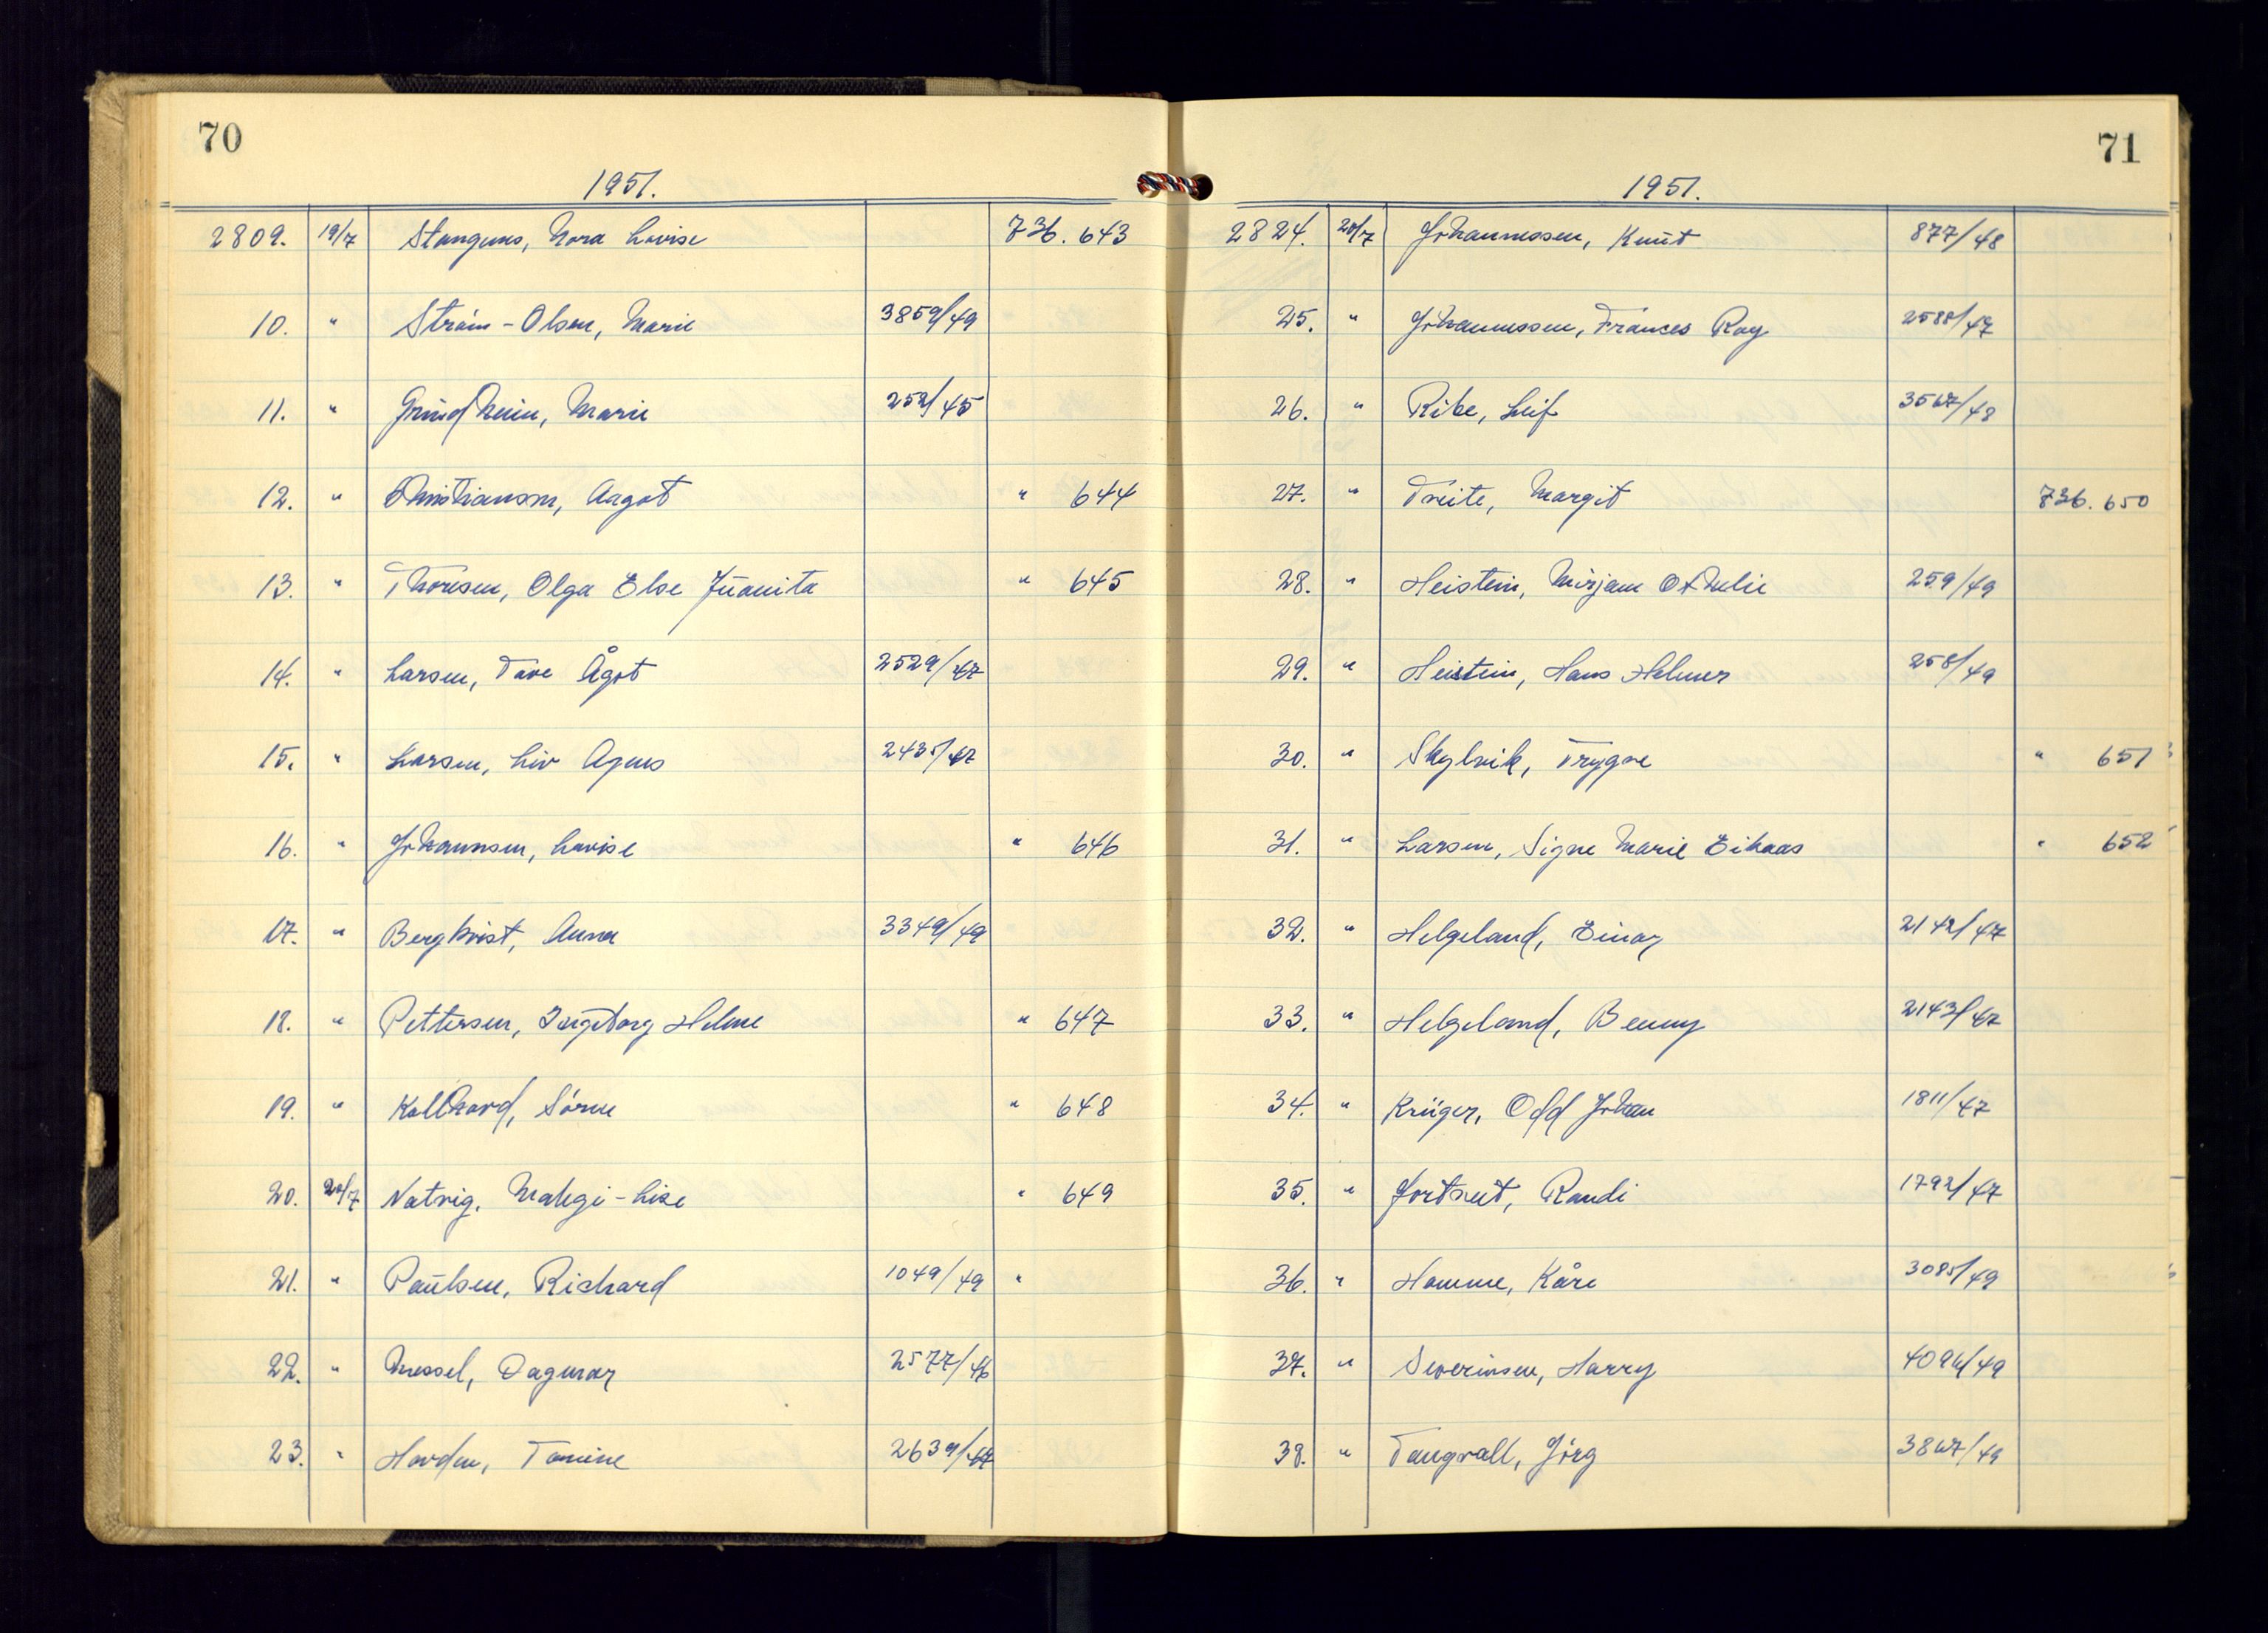 70
1951.
2809. 19/7 Stangnes, Nora Lovise 736.643
10. " Strøm-Olsen, Marie 3859/49
11. " Grundheim, Marie 252/45
12. " Christiansen, Aagot " 644
13. " Thoresen, Olga Else Juanita " 645
14. " Larsen, Tove Ågot 2529/47
15. " Larsen, Liv Agnes 2435/47
16. " Johannsen, Lovise " 646
17. " Bergkvist, Anna 3349/49
18. " Pettersen, Ingeborg Helene " 647
19. " Kallhovd, Sørine " 648
20. 20/7 Natvig, -Lise " 649
21. " Paulsen, Richard 1049/49 "
22. " Messel, Dagmar 2577/46
23. " Hovden, Tomine 2639/47
71
1951.
2824. 20/7 Johannessen, Knut 877/48
25. " Johannessen, Frances Roy 2588/47
26. " Ribe, Leif 3567/48
27. " Treite, Margit 736.650
28. " Heistein, Mirjam Othelie 259/49
29. " Heistein, Hans Helmer 258/49
30. " Skylvik, Trygve " 651
31. " Larsen, Signe Marie Eikaas " 652
32. " Helgeland, Einar 2142/47
33. " Helgeland, Benny 2143/47
34. " Krüger, Odd Johan 1811/47
35. " Jortveit, Randi 1792/47
36. " Homme, Kåre 3085/49
37. " Severinsen, Harry 4096/49
38. " Tangvall, Jörg 3867/49